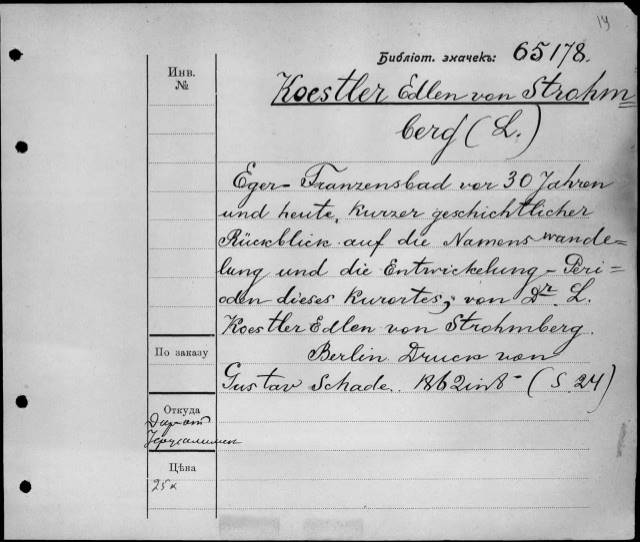 14
Библіот. значекъ: 65178.
Инв.
№
Koestler Edlen von Strohm=
berg (L.)
Eger-Franzensbad vor 30 Jahren
und heute, kurzer geschichtlicher
Rückblick auf die Namenswande=
lung und die Entwickelung-Peri=
oden dieses Kurortes; von Dr. L.
Koestler Edlen von Strohmberg.
По заказу
Berlin Druck von
Gustav Schade. 1862 in 8- (S. 24)
Откуда
Цѣна
25к